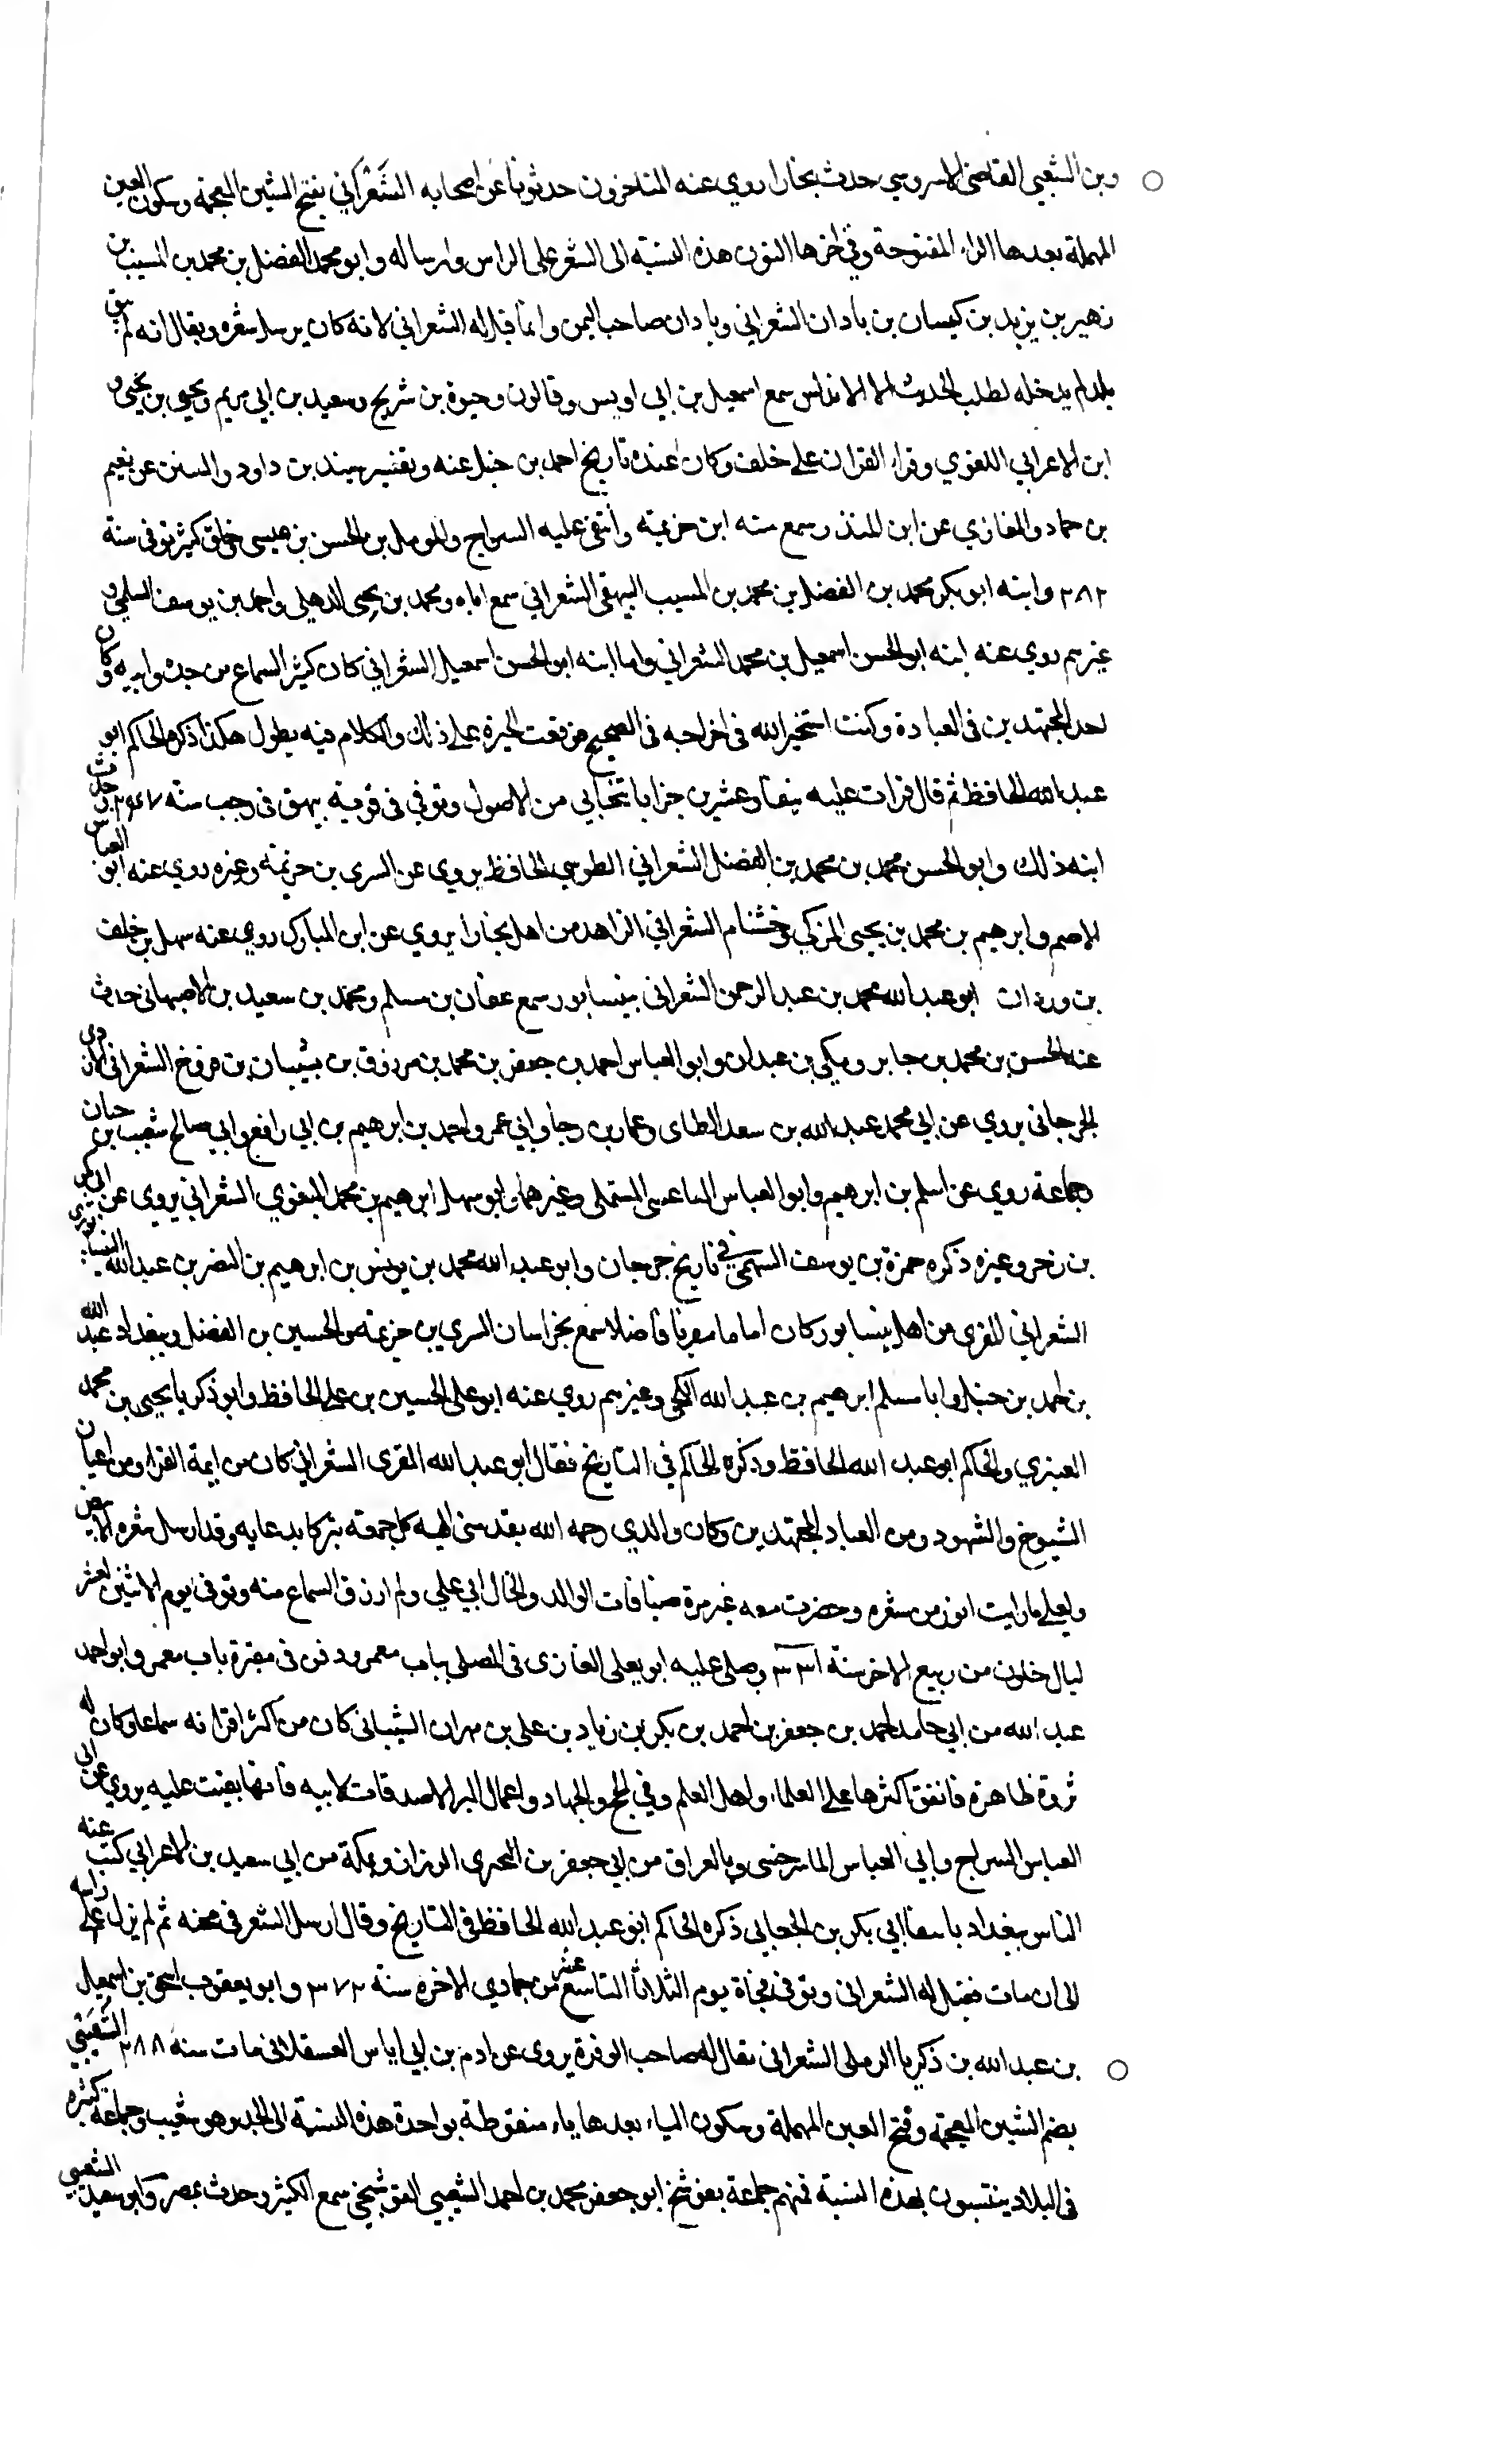 وبن الشعبي القاضي الاسروسي حدث بخارا روي عنه المتاخرون حدثونا عن اصحابه الشَعْرَاني بفتح الشين المعجمة وسكون العين
المهملة بعدها الراء المفتوحة وفي اخرها النون هذه النسبة الى الشعر على الراس وارساله وابو محمد الفضل بن محمد بن المسيب بن
زهير بن يزيد بن كيسان بن بادان الشعراني وبادان صاحب اليمن وانما قيل له الشعراني لانه كان يرسل شعره ويقال انه لم يبق
بلد لم يدخله لطلب الحديث الا الاندلس سمع اسمعيل بن ابي اويس وقالون وحيوة بن شريح وسعيد بن ابي مريم ويحيى بن يحيى و
ابن الاعرابي اللغوي وقراء القران على خلف وكان عنده تاريخ احمد بن حنبل عنه وتفسير سيند بن داود والسنن عن نعيم
بن حماد والمغازي عن ابن المنذر سمع منه ابن خزيمة وانتقى عليه السراج والمومل بن الحسن بن عيسى خلق كثير توفى سنة
٢٨٢ وابنه ابو بكر محمد بن الفضل بن محمد بن المسيب البيهقي الشعراني سمع اباه ومحمد بن يحيى الذهلي واحمد بن يوسف السلمي و
غيرهم روي عنه ابنه ابو الحسن اسمعيل بن محمد الشعراني واما ابنه ابو الحسن اسمعيل الشعراني كان كثير السماع من جده وابيه وكان
احد المجتهدين في العبادة وكنت استخير الله في اخراجه في الصحيح فوقعت الخيرة على ذلك والكلام فيه يطول هكذا ذكره الحاكم ابو
عبد الله الحافظ ثم قال قرات عليه نيفا وعشرين جزا بانتخابي من الاصول وتوفي في قرية بيهق في رجب سنة ٣٤٧ حدث
ابنه ذلك وابو الحسن محمد بن محمد بن الفضل الشعراني الطوسي الحافظ يروي عن السري بن خزيمة وغيره روي عنه ابو العباس
الاصم وابرهيم بن محمد بن يحيى المزكي وخشنام الشعراني الزاهد من اهل بخارا يروي عن ابن المبارك روي عنه سهل بن خلف
بن وردان ابو عبد الله محمد بن عبد الرحمن الشعراني بنيسابور سمع عفان بن مسلم ومحمد بن سعيد بن الاصبهاني حدث
عنه الحسن بن محمد بن جابر ومكي بن عبدان وابو العباس احمد بن جعفر بن محمد بن مرزوق بن شيبان بن فروخ الشعراني الازدي
الجرجاني يروي عن ابي محمد عبد الله بن سعد الطاي وعمار بن رجا وابي عمر واحمد بن ابرهيم بن ابي رافع وابي صالح شعيب بن حبان
وجماعة روي عن اسلم بن ابرهيم وابو العباس المستملى وغيرهما وابو سهل ابرهيم بن محمد البغوي الشعراني يروي عن
بن زخر وغيره ذكره حمزة بن يوسف السهمي في تاريخ جرجان وابو عبد الله محمد بن يونس بن ابرهيم بن النضر بن عبد الله النيسابوري
الشعراني المقري من اهل نيسابور كان اماما مقريا فاضلا سمع بخراسان السري بن خزيمة والحسين بن الفضل وببغداد عبد الله
بن احمد بن حنبل وابا مسلم ابرهيم بن عبد الله الكجي وغيرهم روي عنه ابو على الحسين بن على الحافظ وابو زكريا يحيى بن محمد
العنبري والحاكم ابو عبد الله الحافظ وذكره الحاكم في التاريخ فقال ابو عبد الله المقري الشعراني كان من ايمة القراء ومن اعيان
الشيوخ والشهود ومن العباد المجتهدين وكان والدي رحمه الله يقدمني اليه كل جمعة تبركا بدعايه وقد ارسل شعره الابيض
ولعلى مارايت انور من شعره وحضرت معه غير مرة ضيافات الوالد والخال ابي علي ولم ارزق السماع منه وتوفى يوم الاثنين لعشر
ليال خلون من ربيع الاخر سنة ٣٣١ وصلى عليه ابو يعلى الغازى في المصلى بباب معمر ودفن في مقبرة باب معمر وابو احمد
عبد الله من ابي حامد احمد بن جعفر بن احمد بن بكر بن زياد بن على بن مهران الشيباني كان من اكثر اقرانه سماعا وكان له
ثروة ظاهرة فانفق اكثرها على العلماء واهل العلم وفي الحج والجهاد واعمال البر الا صدقات لابيه فانها بقيت عليه يروي عن ابي
العباس السراج وابي العباس الماسرخسى وبالعراق من ابي جعفر بن البحترى الرزاز وبمكة من ابي سعيد بن الاعرابي كتب عنه
الناس ببغداد ابي بكر بن الجعابي ذكره الحاكم ابو عبد الله الحافظ في التاريخ وقال ارسل الشعر في محنة ثم لم يزل على راسه
الى ان مات فقيل له الشعراني وتوفى فجاة يوم الثلاثا التاسع عشر من جمادي الاخره سنة ٣٧٢ وابو يعقوب اسحق بن اسمعيل
بن عبد الله بن زكريا الرملى الشعرانى يقال له صاحب الوفرة يروى عن ادم بن ابي اياس العسقلاني مات سنة ٢٨٨ الشُعَيْبِي
بضم الشين المعجمة وفتح العين المهملة وسكون الياء بعدها باء منقوطة بواحدة هذه النسبة الى الجد وهو شعيب وجماعة كثيره
في البلاد ينتسبون بهذه النسبة فمنهم جماعة بفوشنج ابو جعفر محمد بن احمد الشعيبي الفوشنجي سمع الكثير وحدث بمصر وابو سعيد الشعيبي